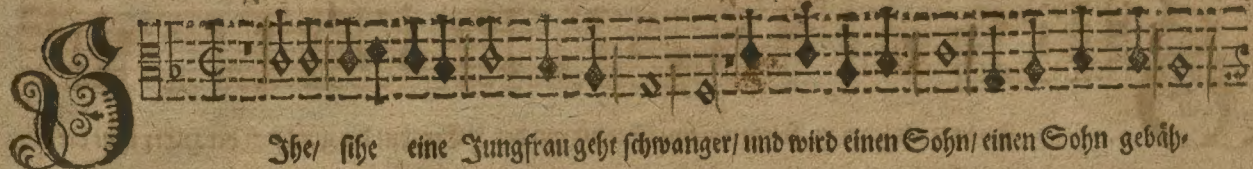 SIhe/ sihe eine Jungfrau geht schwanger/ und wird einen Sohn/ einen Sohn gebäh-